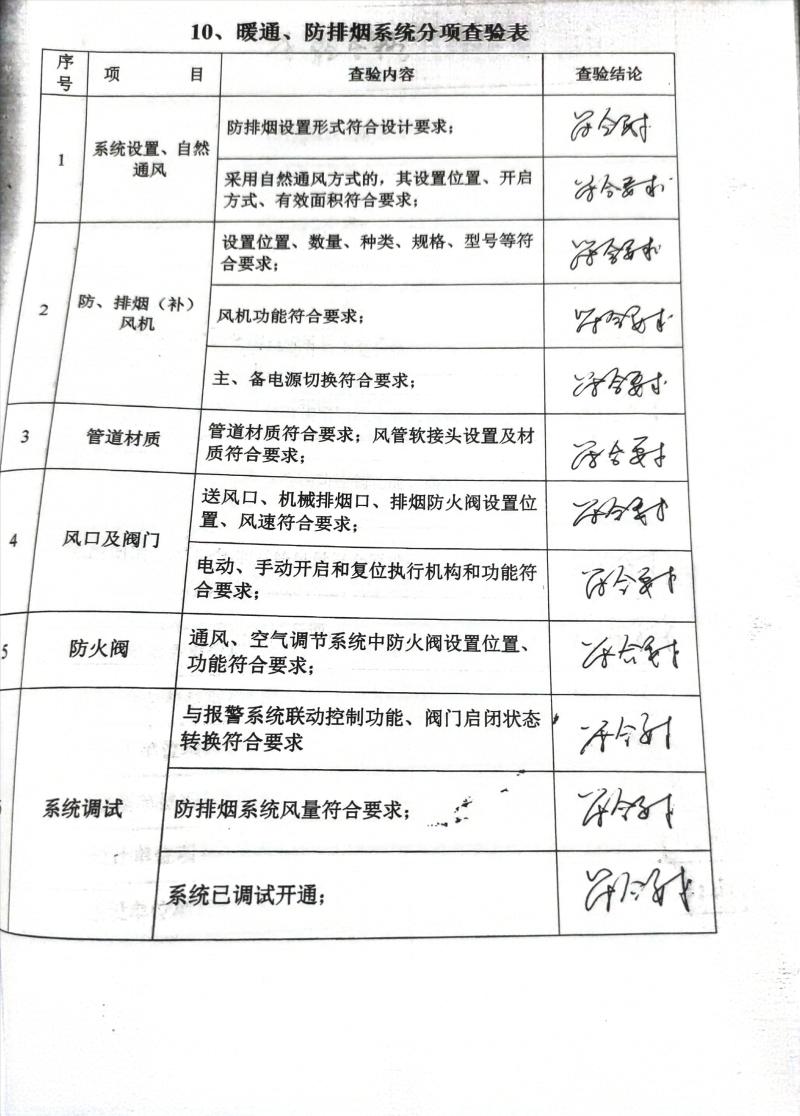 10、暖通、防排烟系统分项查验表
序号 项 目 查验内容 查验结论
1 系统设置、自然
通风
防排烟设置形式符合设计要求; 符合要求
采用自然通风方式的，其设置位置、开启
方式、有效面积符合要求; 符合要求
2 防、排烟（补）
风机
设置位置、数量、种类、规格、型号等符
合要求; 符合要求
风机功能符合要求; 符合要求
主、备电源切换符合要求; 符合要求
3 管道材质
管道材质符合要求；风管软接头设置及材
质符合要求; 符合要求
4 风口及阀门
送风口、机械排烟口、排烟防火阀设置位
置、风速符合要求; 符合要求
电动、手动开启和复位执行机构和功能符
合要求; 符合要求
5 防火阀
通风、空气调节系统中防火阀设置位置、
功能符合要求; 符合要求
系统调试
与报警系统联动控制功能、阀门启闭状态
转换符合要求 符合要求
防排烟系统风量符合要求; 符合要求
系统已调试开通; 符合要求